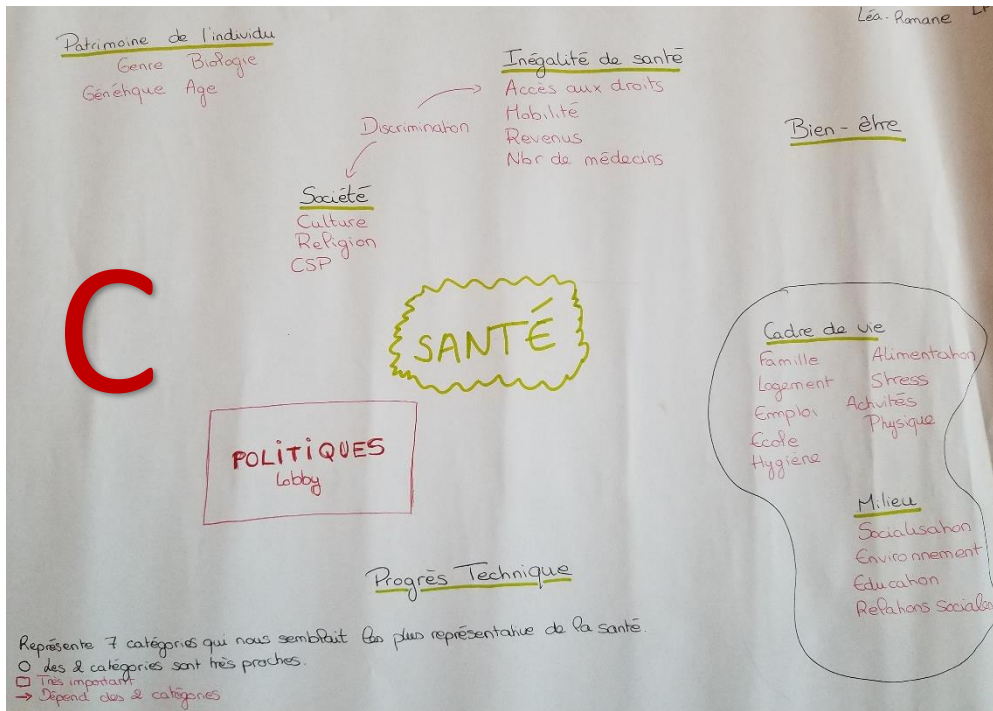 Léa-Romane
Patrimoine de l'individu
Genre Biologie
Génétique Age
Inégalité de santé
Accès aux droits
Mobilité
Revenus
Nbr de médecins
Discrimination
Bien-être
Société
Culture
Religion
CSP
C
SANTÉ
Cadre de vie
Famille Alimentation
Logement Stress
Emploi Activités
Physique
Ecole
Hygiène
POLITIQUES
Lobby
Milieu
Socialisation
Environnement
Education
Relations Sociales
Progrès Technique
Représente 7 catégories qui nous semblait les plus représentative de la santé.
des 2 catégories sont très proches.
Très important
→ Dépend des 2 catégories